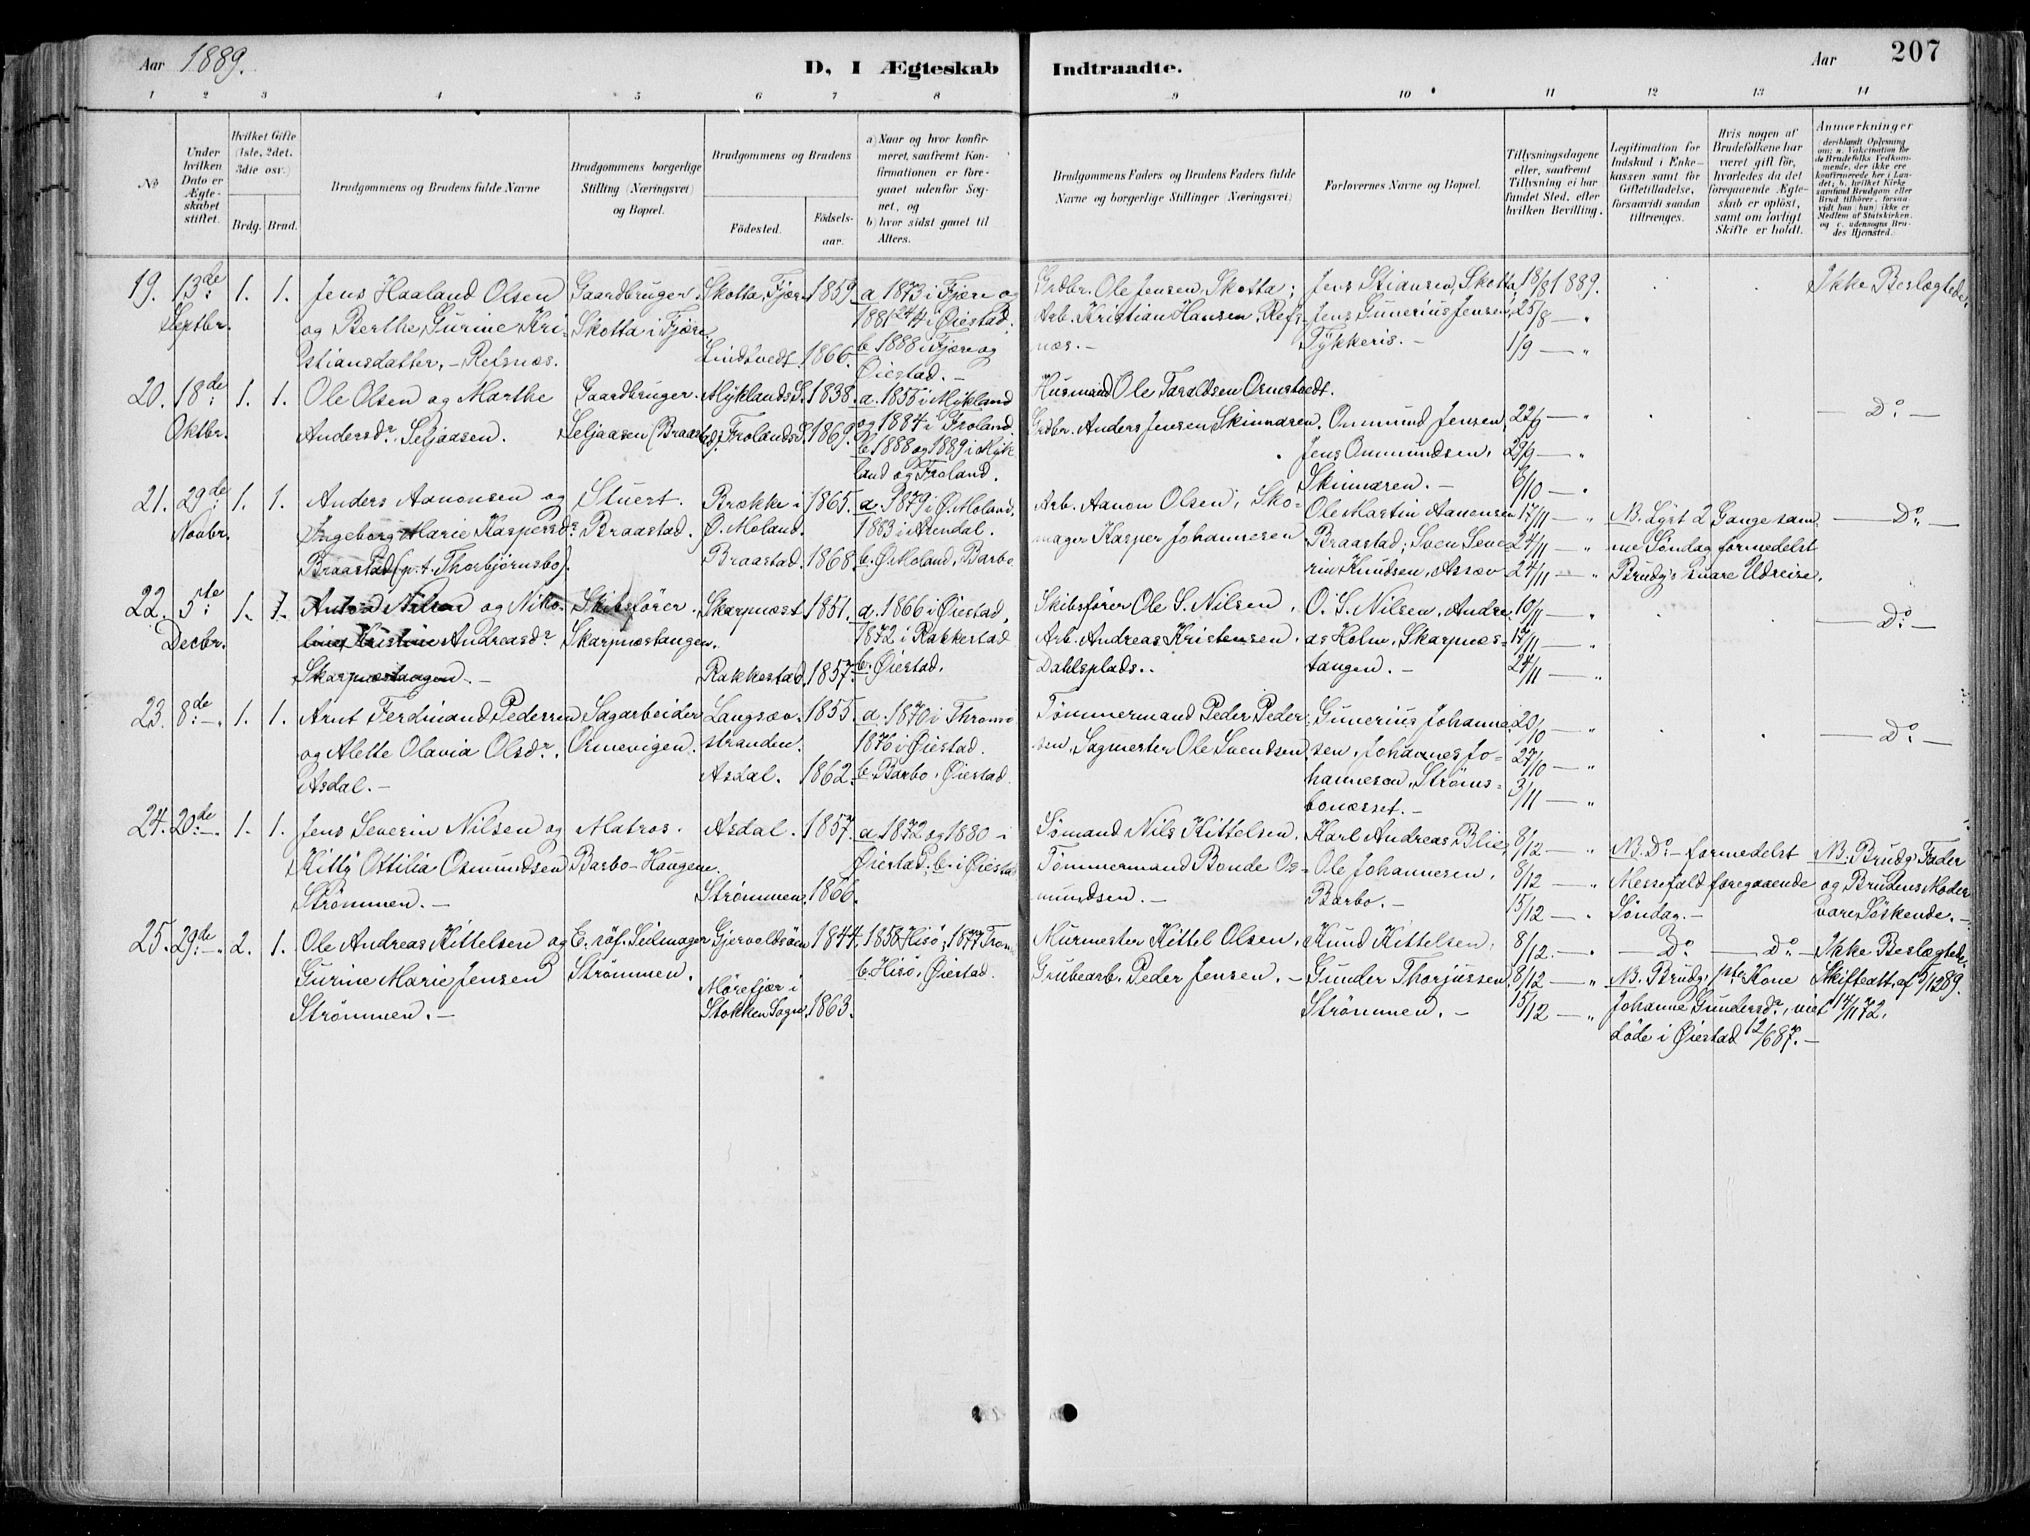 Aar 1889.
D, I Ægteskab
Indtraadte.
Aar
207
1 2 3 4 5 6 7 8 9 10 11 12 13 14
No
Under hvilken Dato er Ægteskabet stiftet.
Hvilket Gifte (1ste, 2det, 3die osv.)
Brdg. Brud.
Brudgommens og Brudens fulde Navne
Brudgommens borgerlige Stilling (Næringsvei) og Bopæl.
Brudgommens og Brudens
Fødested.
Fødselsaar.
a) Naar og hvor konfirmeret, saafremt Konfirmationen er foregaaet udenfor Sognet, og
b) hvor sidst gaaet til Alters.
Brudgommens Faders og Brudens Faders fulde Navne og borgerlige Stillinger (Næringsvei)
Forlovernes Navne og Bopæl.
Tillysningsdagene eller, saafremt Tillysning ei har fundet Sted, efter hvilken Bevilling.
Legitimation for Indskud i Enkekassen samt for Giftetilladelse, forsaavidt saadan tiltrænges.
Hvis nogen af Brudefolkene har været gift før, hvorledes da det foregaaende Ægteskab er opløst, samt om lovligt Skifte er holdt.
Anmærkninger (deriblandt Oplysning om: a. Vakcination for de Brudefolks Vedkommende, der ikke ere konfirmerede her i Landet; b. hvilket Kirkesamfund Brudgom eller Brud tilhører, forsaavidt han (hun) ikke er Medlem af Statskirken, og c. udensogns Brudes Hjemsted.
19. 13de Septbr. 1. 1.
Jens Haaland Olsen
og Berthe Gurine Kri-
stiansdatter, - Refsnæs.
Gaardbruger.
Skotta i Fjære.
Skotta, Fjære 1859.
Lindtvedt. 1866.
a 1873 i Fjære og
1881 24/4 i Øiestad.
b 1888 i Fjære og
Øiestad. -
Grdbr. Ole Jensen, Skotta;
Arb. Kristian Hansen, Refs-
næs. -
Jens Stiansen, Skotta,
Jens Gunerius Jensen,
Tykkeris. -
18/8 1889.
25/8 - "
1/9 - "
Ikke Beslægtede.
20. 18de Oktbr. 1. 1.
Ole Olsen og Marthe
Andersdr. Seljaasen.
Gaardbruger.
Seljaasen (Braastad).
Myklands S. 1838.
Frolands S. 1869.
a. 1855 i Mykland
og 1884 i Froland.
b 1888 og 1889 i Myk-
land og Froland.
Husmand Ole Taraldsen Ormstvedt.
Grdbr. Anders Jensen Skinnaren.
Ommund Jensen,
Jens Ommundsen,
Skinnaren. -
22/9 - "
29/9 - "
6/10 - "
- Do. -
21. 29de Novbr. 1. 1.
Anders Aanonsen og
Ingeborg Marie Kaspersdr.
Braastad (p.t. Thorbjørnsbo).
Stuert.
Braastad.
Brække i
Ø. Moland. 1865.
Braastad. 1868.
a. 1879 i Ø. Moland.
1883 i Arendal.
b. Ø. Moland, Barbo
Arb. Aanon Olsen; Sko-
mager Kasper Johannesen
Ole Martin Aanonsen
Braastad; Sven Seve-
rin Knudsen, Assæv
17/11 - "
24/11 - "
24/11 - "
NB. Lyst 2 Gange sam-
me Søndag formedelst
Brudg's snare Udreise.
- Do. -
22. 5te Decbr. 1. 1.
Anton Nilsen og Niko-
line Kristine Andreasdr.
Skarpnæstangen. -
Skibsfører.
Skarpnæstangen.
Skarpnæst. 1851.
Rakkestad. 1857.
a. 1866 i Øiestad,
1872 i Rakkestad
b. Øiestad.
Skibsfører Ole S. Nilsen,
Arb. Andreas Kristensen,
Dahlsplads..
O. S. Nilsen, Andre-
as Holm, Skarpnæs-
tangen. -
10/11 - "
17/11 - "
24/11 - "
- Do. -
23. 8de - 1. 1.
Arnt Ferdinand Pedersen
og Alette Olavia Olsdr.
Asdal. -
Sagarbeider
Ormevigen.
Langsæv-
stranden. 1855.
Asdal. 1862.
a. 1870 i Thromø
1876 i Øiestad.
b. Barbo, Øiestad.
Tømmermand Peder Peder-
sen, Sagmester Ole Svendsen
Gunerius Johanne-
sen, Johannes Jo-
hannesen, Strøms-
bonæsset. -
20/10 - "
27/10 - "
3/11 - "
- Do. -
24. 20de - 1. 1.
Jens Severin Nilsen og
Kitty Ottilia Osmundsen
Strømmen. -
Matros.
Barbo-Haugene
Asdal. 1857.
Strømmen. 1866.
a 1872 og 1880 i
Øiestad; b. i Øiestad
Sømand Nils Kittelsen.
Tømmermand Bonde Os-
mundsen. -
Karl Andreas Blie,
Ole Johannesen,
Barbo. -
8/12 - "
8/12 - "
15/12 - "
NB. Do. formedelst
Messefald foregaaende
Søndag. -
NB. Brudgs Fader
og Brudens Moder
vare Søskende. -
25. 29de - 2. 1.
Ole Andreas Kittelsen og
Gurine Marie Jensen
Strømmen. -
E. røf. Seilmager
Strømmen.
Gjervoldsøen 1844.
Mørefjær i
Stokken Sogn, 1863.
1858 Hisø; 1877 Trom.
b. Hisø, Øiestad.
Murmester Kittel Olsen,
Grubearb. Peder Jensen. -
Knud Kittelsen,
Gunder Thorjussen,
Strømmen. -
8/12. - "
8/12 - "
15/12 - "
- Do. - Do. -
NB. Brudg's 1ste Kone
Johanne Gundersdr., viet 14/11 72,
døde i Øiestad 12/6 87. -
Ikke Beslægtede.
Skifteatt. af 5/12 89.